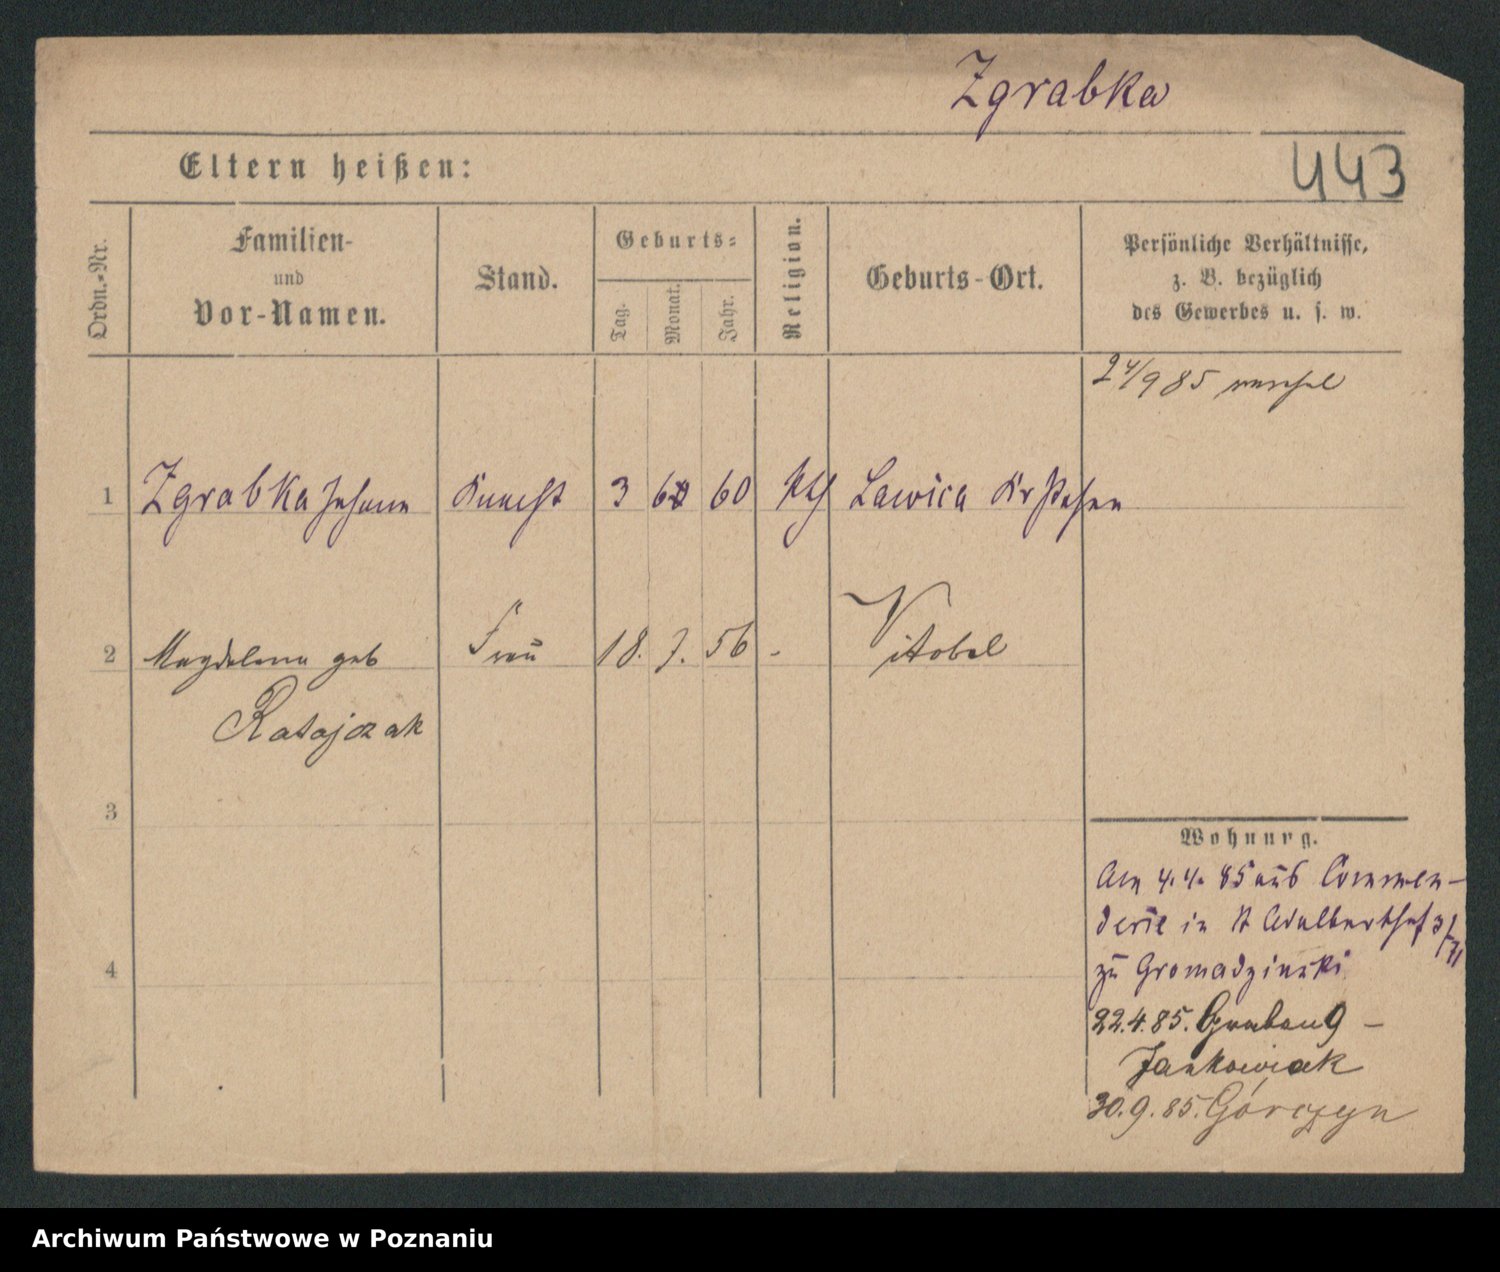 Zgrabka
443
Eltern heißen:
Ordn.-Nr.
Familien-
und
Vor-Namen.
Stand.
Geburts-
Tag.
Monat.
Jahr.
Religion.
Geburts-Ort.
Persönliche Verhältnisse,
z. B. bezüglich
des Gewerbes u. s. w.
24/9 85
1 Zgrabka Johann Knecht 3 6 60 Kth Lawica Kr Posen
2 Magdalena geb Frau 18. 7. 56 - Vitobel
Ratajczak
3
4
Wohnung.
Am 4.4. 85 aus Commen-
derie in St Adalbertstr 3/
zu Gromadzinski
22.4.85. Graben 9 -
Jankowiak
30.9.85. Górczyn
Archiwum Państwowe w Poznaniu